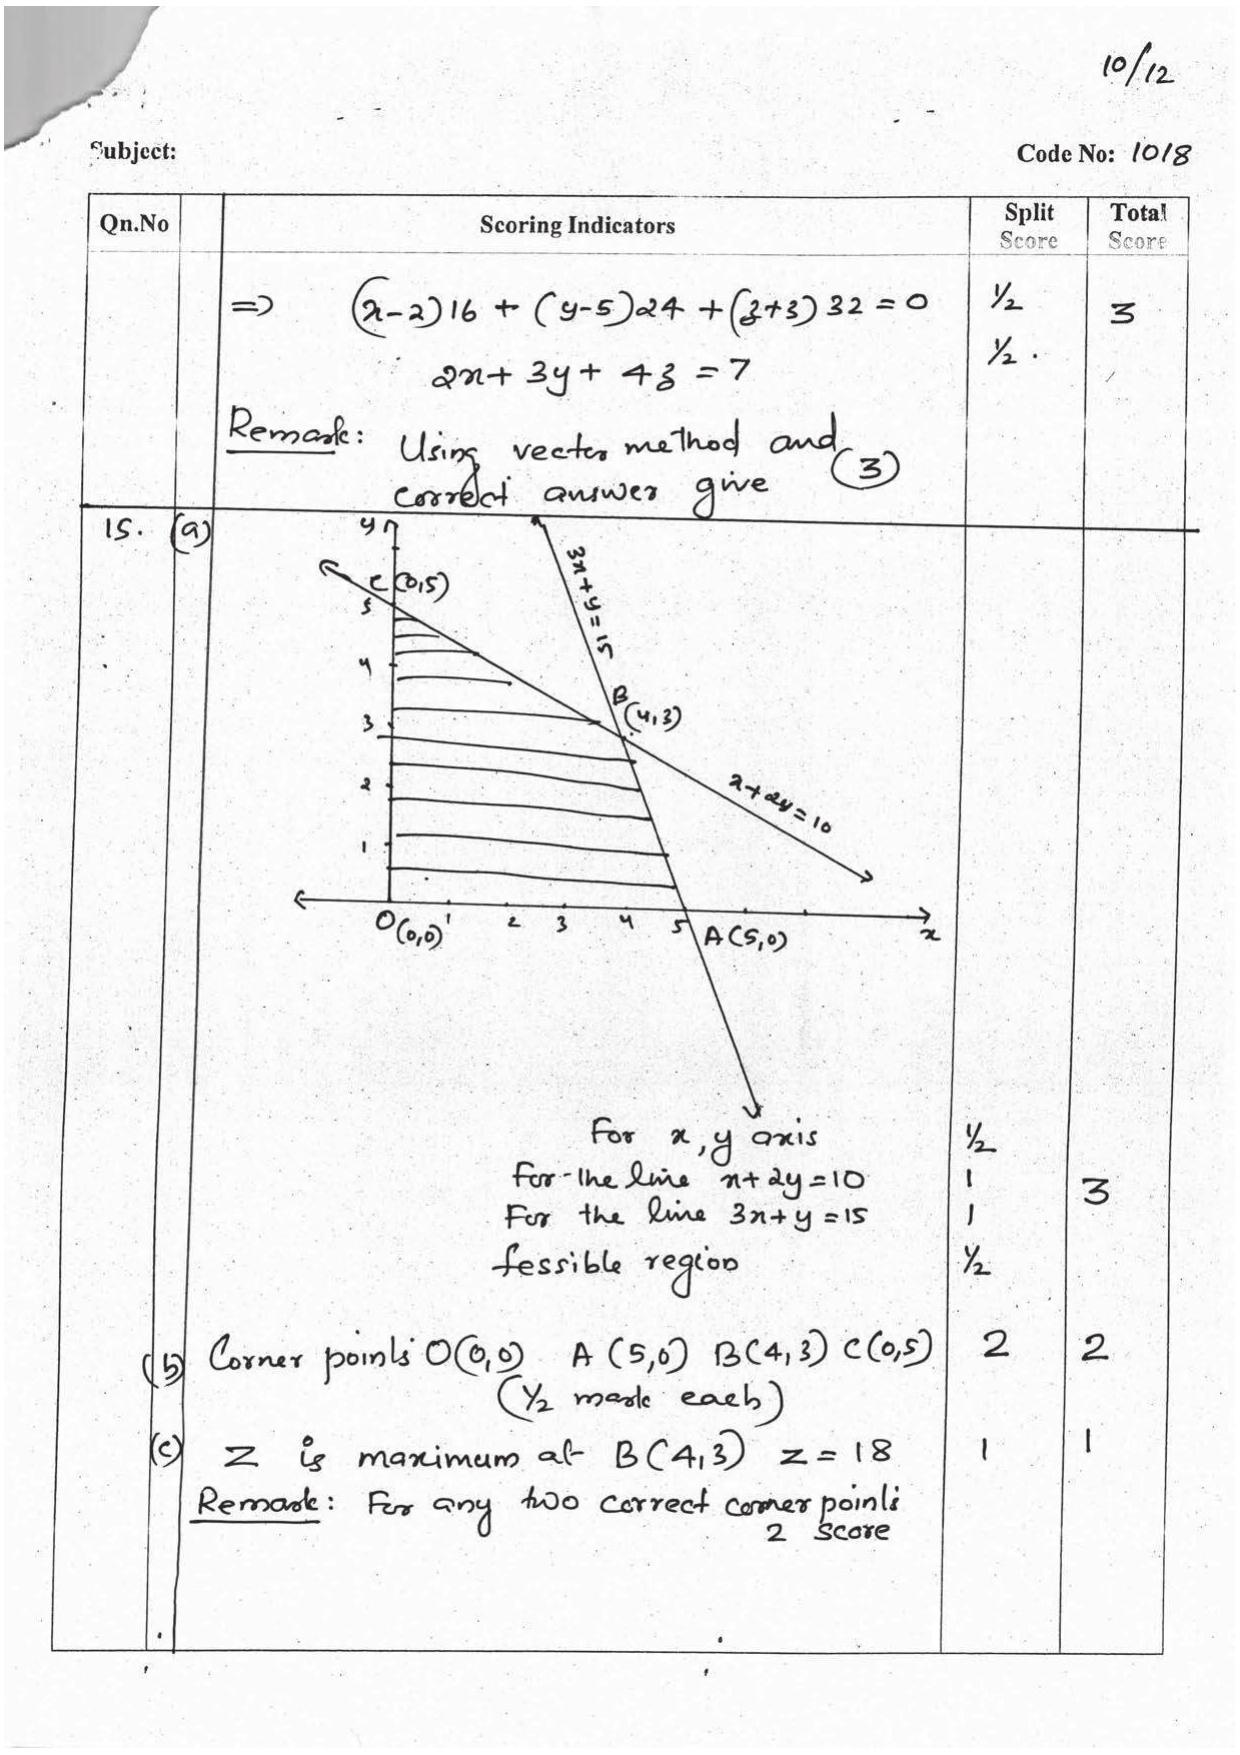 10/12
Subject:
Code No: 1018
Qn.No Scoring Indicators Split Score Total Score
=> (x-2)16 + (y-5)24 + (z+3) 32 = 0 1/2 3
2x + 3y + 4z = 7 1/2 .
Remark: Using vector method and
correct answer give (3)
15. (a)
y
C(0,5)
3x+y=15
5
4
B(4,3)
3
2
x+2y=10
1
O(0,0) 1 2 3 4 5 A(5,0) x
For x, y axis 1/2
For the line x+2y=10 1 3
For the line 3x+y=15 1
fessible region 1/2
(b) Corner points O(0,0) A(5,0) B(4,3) C(0,5) 2 2
(1/2 mark each)
(c) Z is maximum at B(4,3) Z = 18 1 1
Remark: For any two correct corner points
2 score